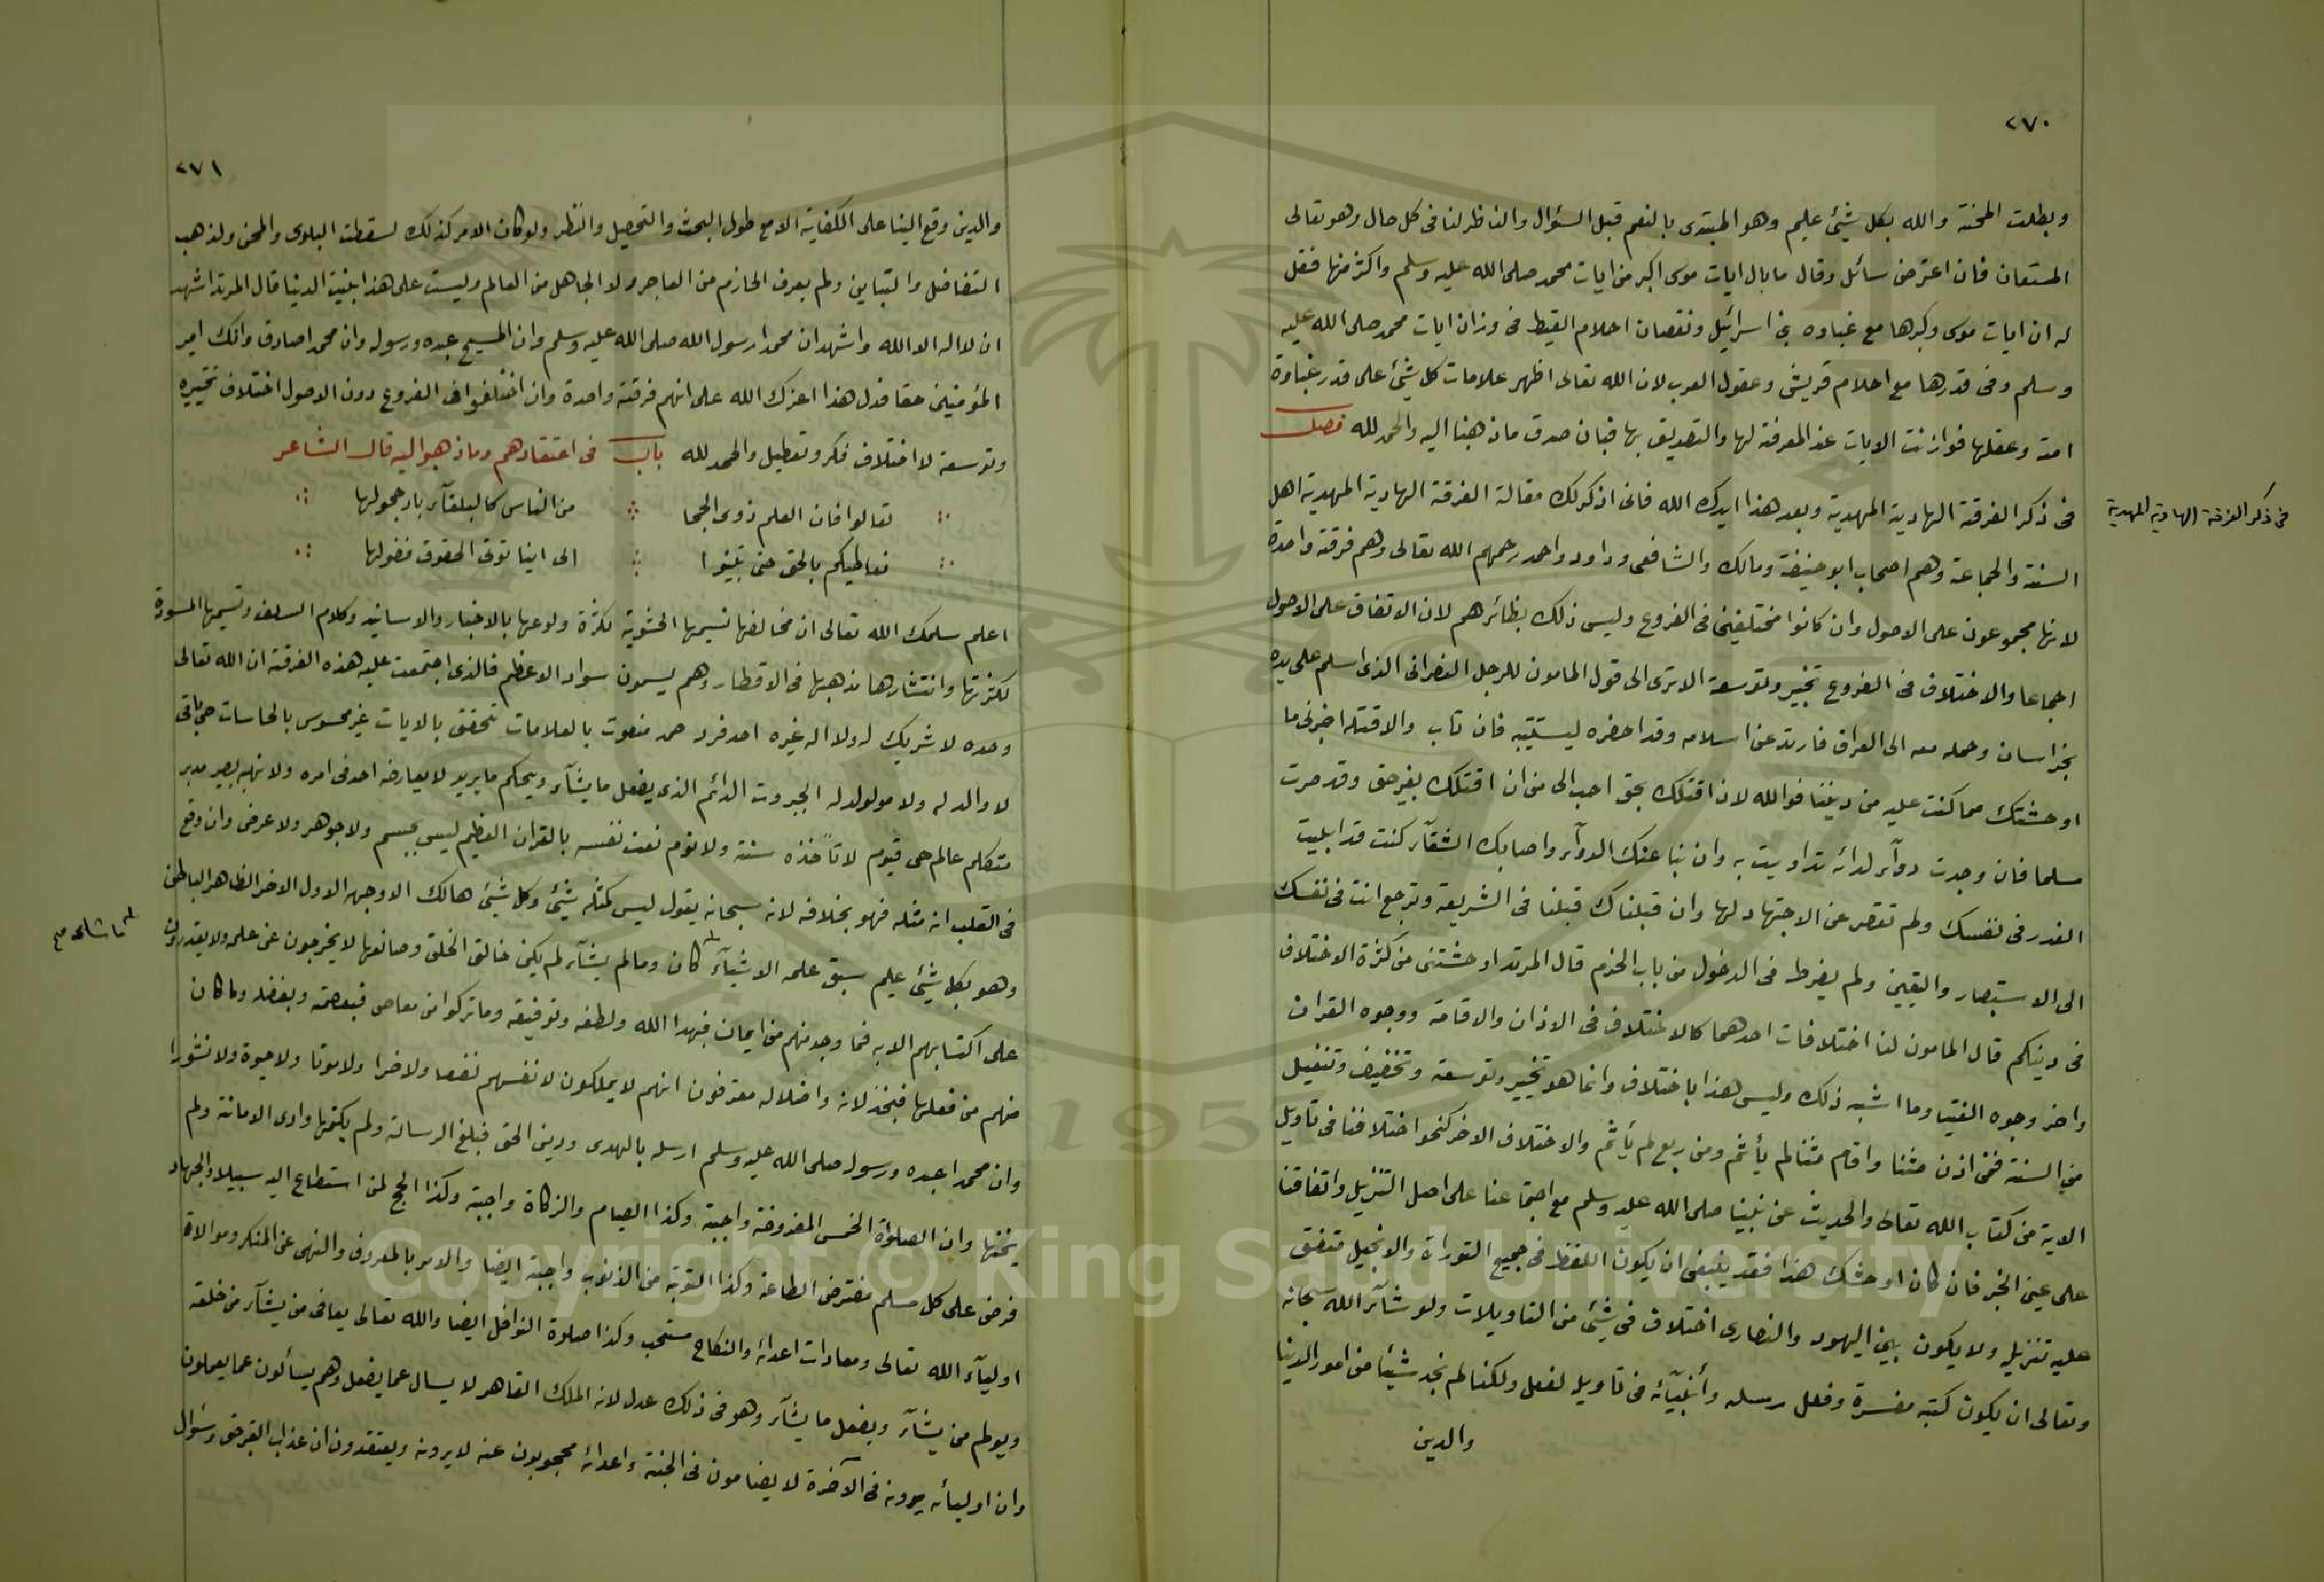 ٢٧٠
وبطلت المحنة والله بكل شيئ عليم وهو المبتدى بالنعم قبل السؤال والناظر لنا فى كل حال وهو تعالى
المستعان فان اعترض سائل وقال ما بال ايات موسى اكبر من ايات محمد صلى الله عليه وسلم واكثر منها فقل
له ان ايات موسى وكبرها مع غباوه بنى اسرائيل ونقصان احلام القبط فى وزان ايات محمد صلى الله عليه
وسلم وفى قدرها مع احلام قريش وعقول العرب لان الله تعالى اظهر علامات كل شيئ على قدر غباوة
امته وعقلها فوازنت الايات عند المعرفة لها والتصديق بها فبان صدق ما ذهبنا اليه والحمد لله فصل
فى ذكر الفرقة الهادية المهدية وبعد هذا ايدك الله فانى اذكر لك مقالة الفرقة الهادية المهدية اهل
فى ذكر الفرقة الهادية المهدية
السنة والجماعة وهم اصحاب ابو حنيفة ومالك والشافعى وداود واحمد رحمهم الله تعالى وهم فرقة واحدة
لانها مجموعون على الاصول وان كانوا مختلفين فى الفروع وليس ذلك بظائرهم لان الاتفاق على الاصول
اجماعا والاختلاف فى الفروع تخيير وتوسعة الا ترى الى قول المامون للرجل النصرانى الذى اسلم على يده
بخراسان وحمله معه الى العراق فارتد عن اسلامه وقد احضره ليستتيبه فان تاب والا قتله اخبرنى ما
اوحشتك مما كنت عليه من ديننا فوالله لان اقتلك بحق احب الى من ان اقتلك بغير حق وقد صرت
مسلما فان وجدت دوآء لدائه تداويت به وان نبا عنك الدوآء واصابك الشقآء كنت قد ابليت
العذر فى نفسك ولم تقصر عن الاجتهاد لها وان قتلناك قتلنا فى الشريعة وترجع انت فى نفسك
الى الاستبصار واليقين ولم يفرط فى الدخول من باب الحزم قال المرتد اوحشتنى من كثرة الاختلاف
فى دينكم قال المامون لنا اختلافات احدهما كالاختلاف فى الاذان والاقامة ووجوه القران
واخر وجوه الفتيا وما اشبه ذلك وليس هذا باختلاف وانما هو تخيير وتوسعة وتخفيف وتنفيل
من السنة فمن اذن مثنا واقام مثنا لم يأثم ومن ربع لم يأثم والاختلاف الاخر كنحو اختلافنا فى تاويل
الاية من كتاب الله تعالى والحديث عن نبينا صلى الله عليه وسلم مع اجتماعنا على اصل التنزيل واتفاقنا
على عين الخبر فان كان اوحشك هذا فقد ينبغى ان يكون اللفظ فى جميع التوراة والانجيل متفق
عليه تنزيله ولا يكون بين اليهود والنصارى اختلاف فى شيئ من التاويلات ولو شآء الله سبحانه
وتعالى ان يكون كتبه مفسرة وفعل رسله وأنبيآئه فى تاويله لفعل ولكنا لم نجد شيئا من امور الدنيا
والدين
٢٧١
والدين وقع الينا على الكفاية الا مع طول البحث والتحصيل والنظر ولو كان الامر كذلك لسقطت البلوى والمحن ولذهب
التفاضل والتباين ولم يعرف الحازم من العاجز ولا الجاهل من العالم وليست على هذا بنيت الدنيا قال المرتد اشهد
ان لا اله الا الله واشهد ان محمدا رسول الله صلى الله عليه وسلم وان المسيح عبده ورسوله وان محمدا صادق وانك امير
المؤمنين حقا فدل هذا اعزك الله على انهم فرقة واحدة وان اختلفوا فى الفروع دون الاصول اختلاف تخييره
وتوسعة لا اختلاف فكر وتعطيل والحمد لله باب فى اعتقادهم وما ذهبوا اليه قال الشاعر
تعالوا فان العلم ذوى الحجا من الناس كالبلقآء باد حجولها
نعاطيكم بالحق حتى تبينوا الى اينا توتى الحقوق فضولها
اعلم سلمك الله تعالى ان مخالفها تسيمها الحشوية لكثرة ولوعها بالاخبار والاسانيد وكلام السلف وتسيمها المسودة
لكثرتها وانتشارها مذهبها فى الاقطار وهم يسمون سواد الاعظم فالذى اجتمعت عليه هذه الفرقة ان الله تعالى
وحده لا شريك له ولا اله غيره احد فرد صمد منعوت بالعلامات تتحقق بالايات غير محسوس بالحاسات حى باقى
لا والد له ولا مولود له الجبروت الدائم الذى يفعل ما يشآء ويحكم ما يريد لا يعارضه احد فى امره ولا نهيه بصير مدبر
متكلم عالم حى قيوم لا تأخذه سنة ولا نوم نعت نفسه بالقران العظيم ليس بجسم ولا جوهر ولا عرض وان وقع
فى القلب انه مثله فهو بخلافه لانه سبحانه يقول ليس كمثله شيئ وكل شيئ هالك الا وجهه الاول الاخر الظاهر الباطن
وهو بكل شيئ عليم سبق علمه الاشيآء كان وما لم يشآء لم يكن خالق الخلق وصانعها لا يخرجون عن علمه ولا يقدرون
على اكتسابهم الا به فما وجد منهم من ايمان فبهدا الله ولطفه وتوفيقه وما تركوا من معاصى فبعصمته وبفضله وما كان
منهم من فعلها فبخذلانه واضلاله معترفون انهم لا يملكون لانفسهم نفعا ولا ضرا ولا موتا ولا حيوة ولا نشورا
وان محمدا عبده ورسوله صلى الله عليه وسلم ارسله بالهدى ودين الحق فبلغ الرسالة ولم يكتمها وادى الامانة ولم
يخنها وان الصلوات الخمس المفروضة واجبة وكذا الصيام والزكاة واجبة وكذا الحج لمن استطاع اليه سبيلا والجهاد
فرض على كل مسلم مفترض الطاعة وكذا التوبة من الذنوب واجبة ايضا والامر بالمعروف والنهى عن المنكر وموالاة
اوليآء الله تعالى ومعادات اعدائه والنكاح مستحب وكذا صلوة النوافل ايضا والله تعالى يعافى من يشآء من خلقه
ويولم من يشآء ويفعل ما يشآء وهو فى ذلك عدل لانه الملك القاهر لا يسال عما يفعل وهم يسألون عما يعملون
وان اوليائه يرونه فى الآخرة لا يضامون فى الجنة واعدائه محجوبون عنه لا يرونه ويعتقدون ان عذاب القبر حق وسؤال
Copyright © King Saud University
195